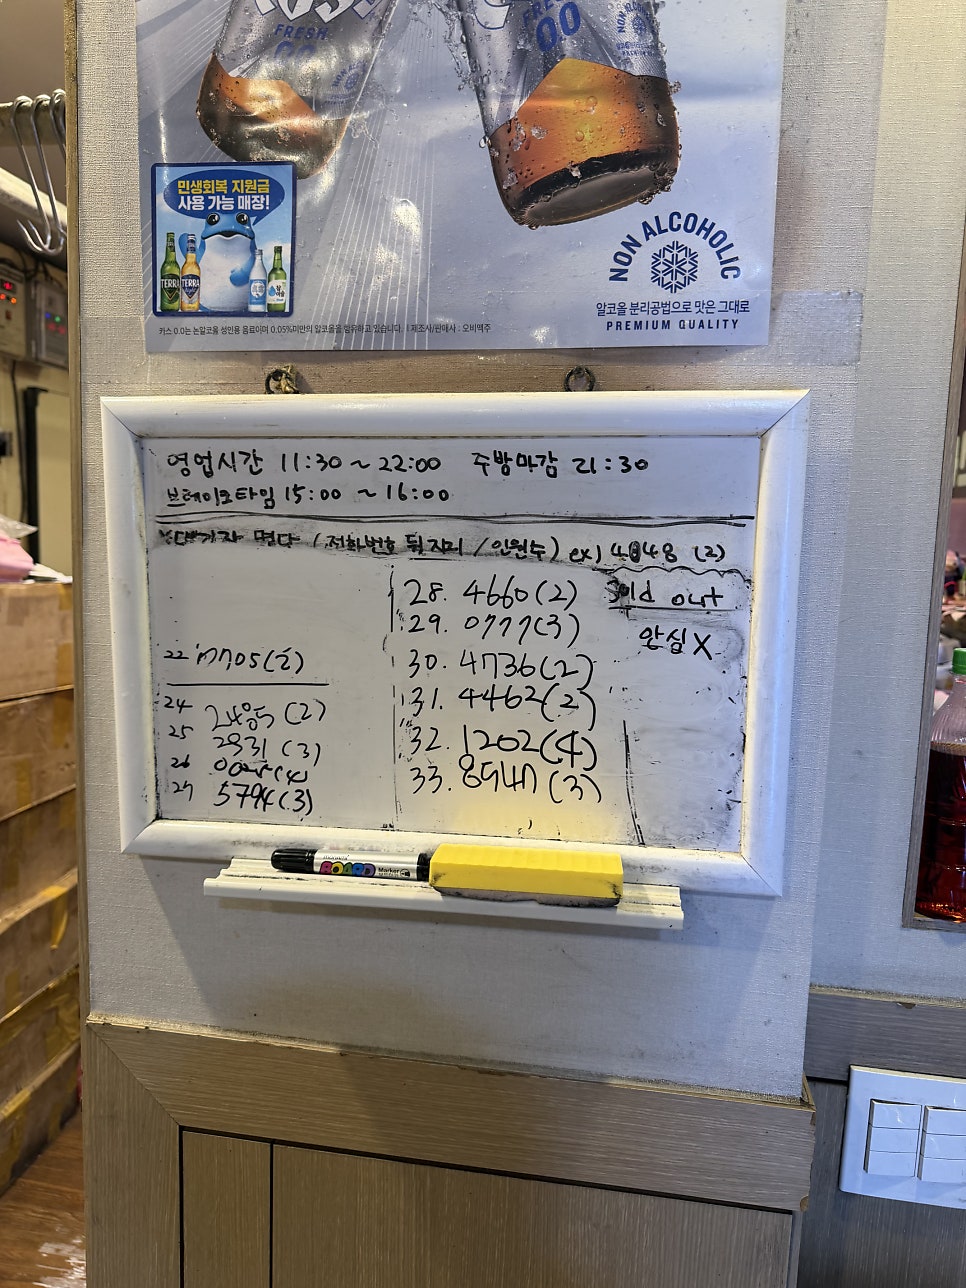 FRESH
0.0
FRESH
0.0
NON ALCOHOLIC
민생회복 지원금
사용 가능 매장!
TERRA
TERRA
NON ALCOHOLIC
알코올 분리공법으로 맛은 그대로
PREMIUM QUALITY
카스 0.0는 논알코올 성인용 음료이며 0.05%미만의 알코올을 함유하고 있습니다. | 제조사/판매사 : 오비맥주
영업시간 11:30~22:00 주방마감 21:30
브레이크타임 15:00 ~16:00
※대기자 명단 (전화번호 뒷자리 / 인원수) ex) 4848 (2)
22 7705(2)
24 2485 (2)
25 2931 (3)
26
27 5794(3)
28. 4660(2)
29. 0777(3)
30. 4736(2)
31. 4462(2)
32. 1202(4)
33. 8547(3)
Sold out
안심 X
BOARD
Marker